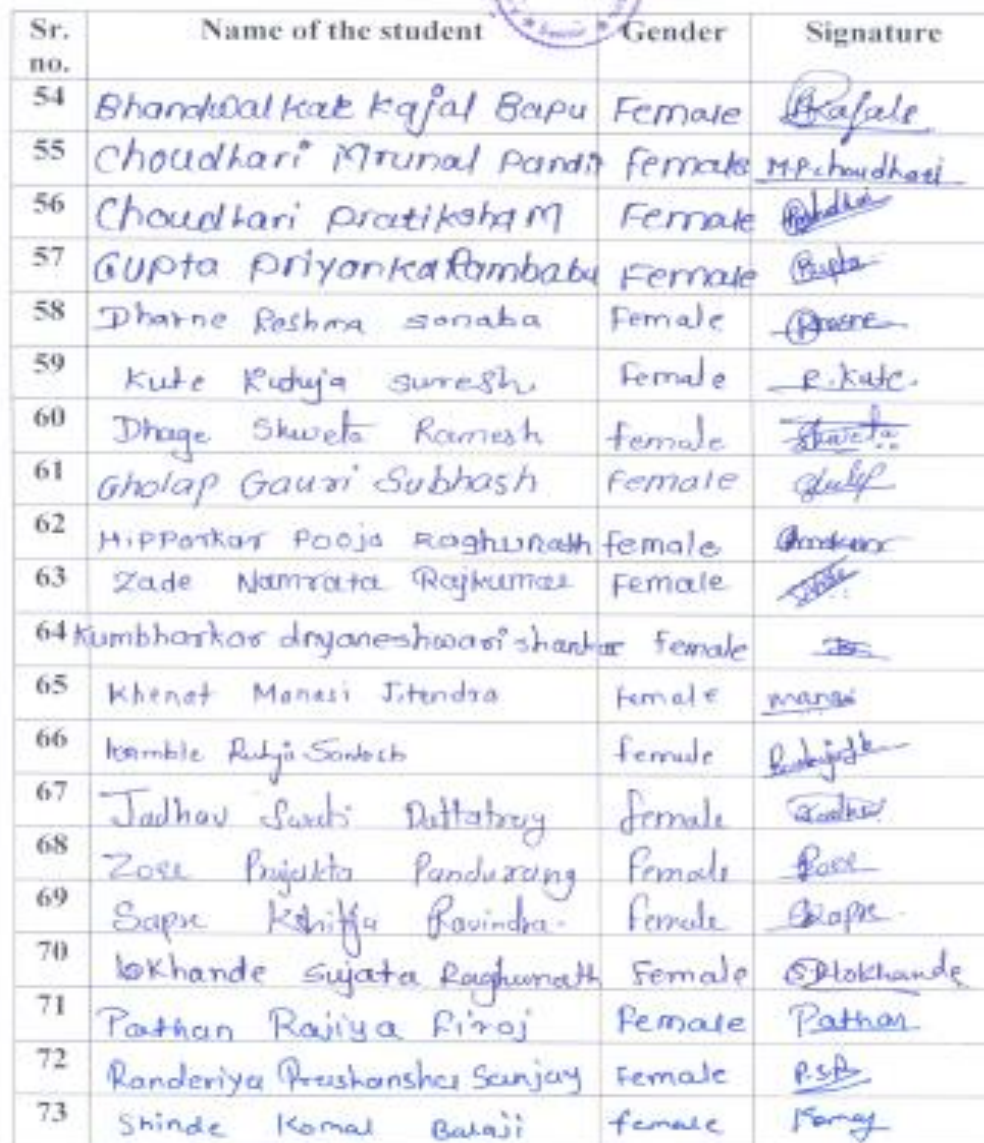 Sr. no. Name of the student Gender Signature
54 Bhandwalkar Kajal Bapu Female
55 Choudhari Mrunal Pandit female M.P.choudhari
56 Choudhari Pratiksha M Female
57 Gupta Priyanka Rambabu Female Gupta
58 Dharne Reshma sonaba Female
59 Kute Rutuja suresh. female R.Kute.
60 Dhage Shweta Ramesh female Shweta
61 Gholap Gauri Subhash Female
62 Hipparkar Pooja Raghunath female
63 Zade Namrata Rajkumar Female
64 Kumbharkar dnyaneshwari shankar Female
65 Khenat Manasi Jitendra Female manasi
66 kamble Rutuja Santosh female
67 Jadhav Swati Dattatray female Jadhav
68 Zore Prajakta Pandurang Female
69 Sapre Kshitija Ravindra. Female Sapre
70 lokhande Sujata Raghunath Female SRlokhande
71 Pathan Rajiya Firoj Female Pathan
72 Randeriya Prashansha Sanjay Female P.SR
73 Shinde Komal Balaji female Komal